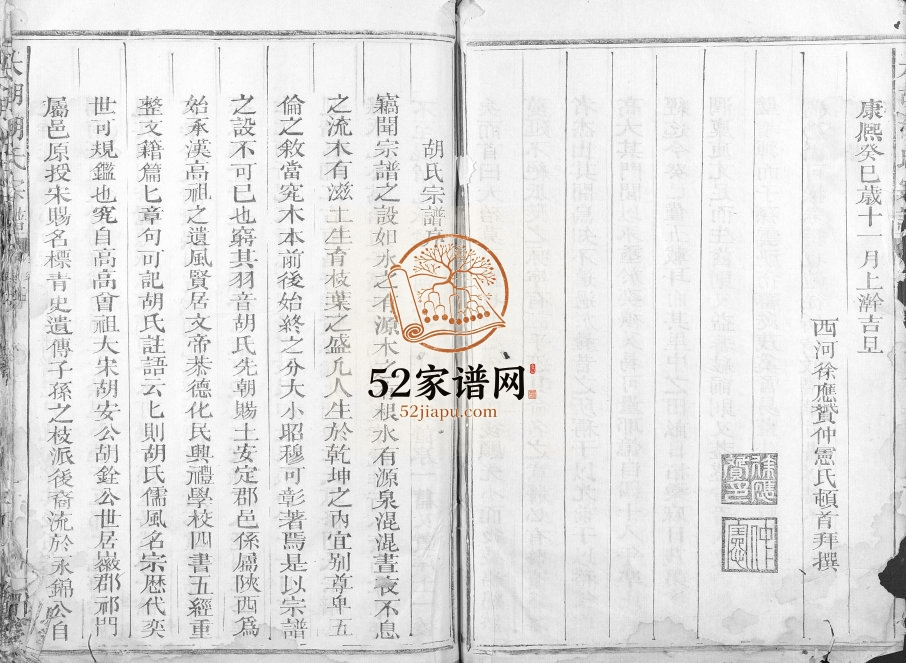 康熙癸巳歲十一月上澣吉旦
西河徐應贇仲憲氏頓首拜撰
徐應贇印
仲憲
胡氏宗譜序
竊聞宗譜之設如水之有源木之有根水有源泉混混晝夜不息
之流木有滋土生育枝葉之盛凢人生於乾坤之內宜别尊卑五
倫之敘當究木本前後始終之分大小昭穆可彰著焉是以宗譜
之設不可已也窮其羽音胡氏先朝賜土安定郡邑係屬陝西爲
始承漢高祖之遺風賢居文帝恭德化民興禮學校四書五經重
整文籍篇匕章句可記胡氏註語云匕則胡氏儒風名宗歷代奕
世可規鑑也究自高高曾祖大宋胡安公胡銓公世居嶽郡祁門
屬邑原授宋賜名標青史遺傳子孫之枝派後裔流於永錦公自
大湖胡氏宗譜
52家谱网
52jiapu.com